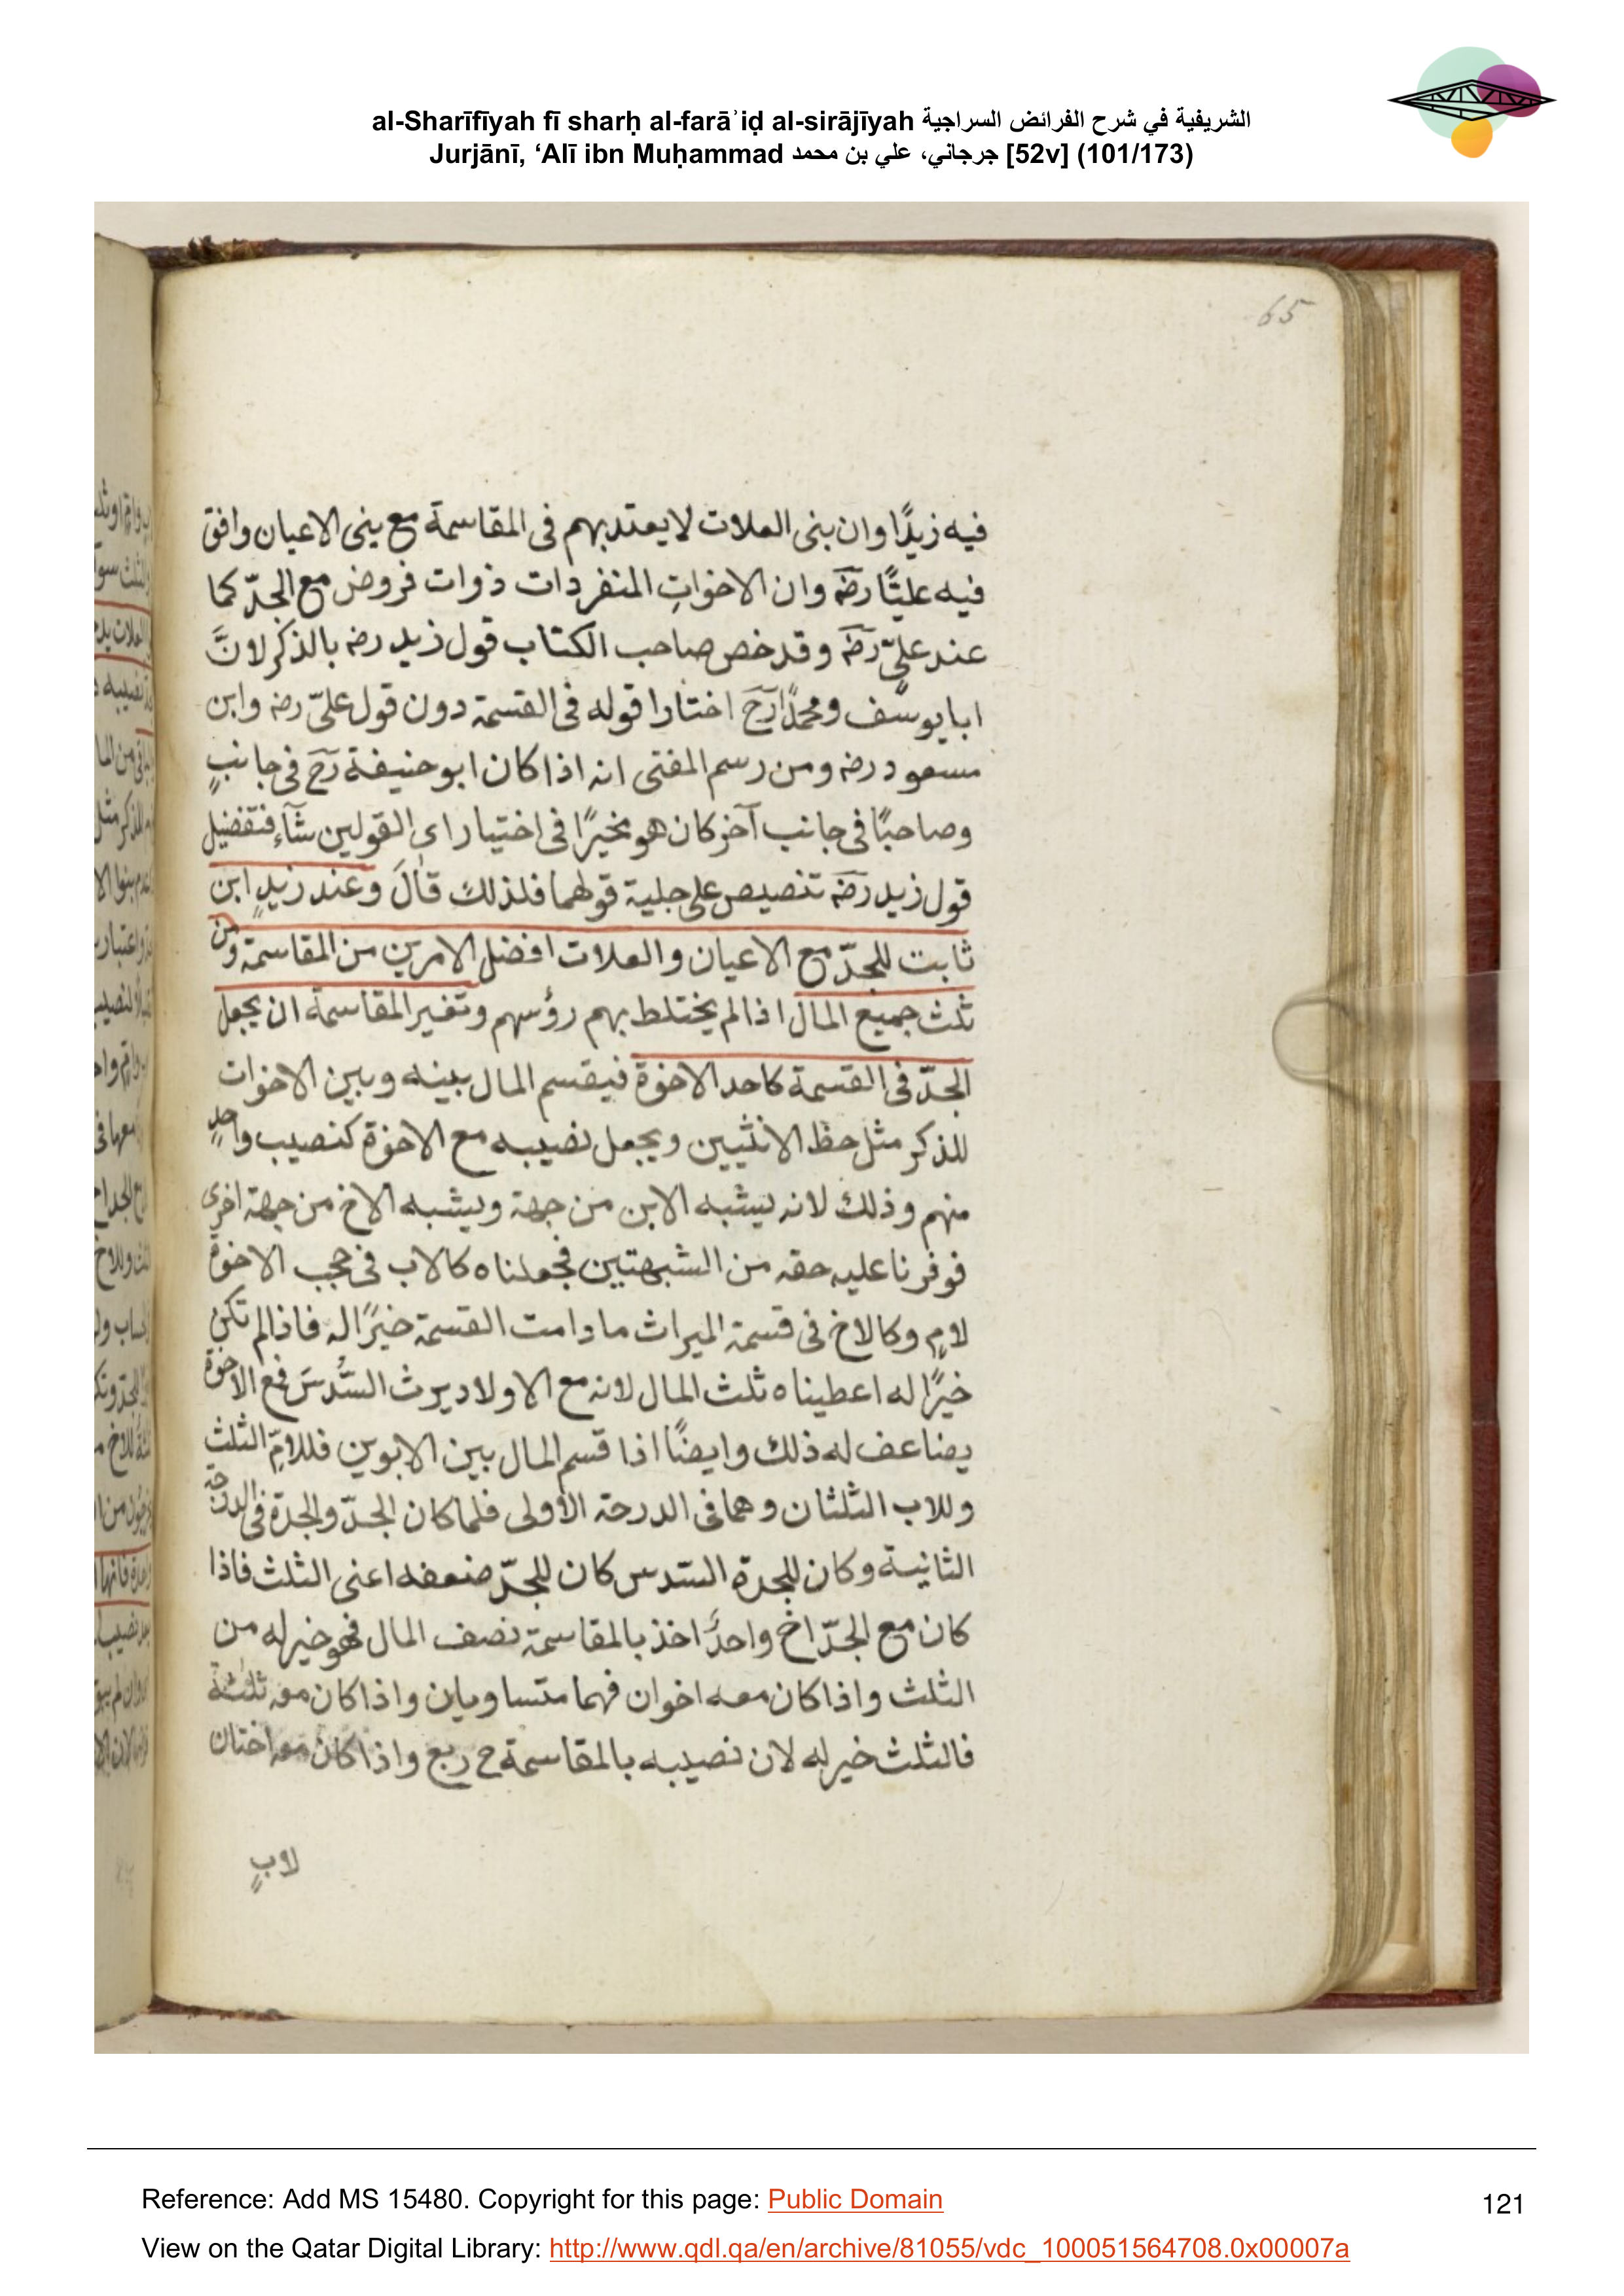 al-Sharīfīyah fī sharḥ al-farāʾiḍ al-sirājīyah الشريفية في شرح الفرائض السراجية
Jurjānī, ʻAlī ibn Muḥammad جرجاني، علي بن محمد [52v] (101/173)
65
فيه زيدًا وان بنى العلات لا يعتد بهم فى المقاسمة مع بنى الاعيان وافق
فيه عليًّا رضه وان الاخواتِ المنفردات ذوات فروض مع الجدّ كما
عند علىّ رضه وقد خص صاحب الكتاب قول زيد رضه بالذكر لانَّ
ابا يوسف ومحمدًا رح اختارا قوله فى القسمة دون قول علىّ رضه وابن
مسعود رضه ومن رسم المفتى انه اذا كان ابو حنيفة رح فى جانبٍ
وصاحبًا فى جانب آخر كان هو مخيرًا فى اختيار اى القولين شآء فتفضيل
قول زيد رضه تنصيص على جلية قولهما فلذلك قالَ وعند زيدٍ ابن
ثابت للجدّ مع الاعيان والعلات افضل الامرين من المقاسمة ومن
ثلث جميع المال اذا لم يختلط بهم رؤسهم وتفير المقاسمة ان يجعل
الجدّ فى القسمة كاحد الاخوة فيقسم المال بينه وبين الاخوات
للذكر مثل حظ الانثيين ويجعل نصيبه مع الاخوة كنصيب واحدٍ
منهم وذلك لانه يشبه الابن من جهة ويشبه الاخ من جهة اخرى
فوفرنا عليه حقه من الشبهتين فجعلناه كالاب فى حجب الاخوة
لامٍ وكالاخ فى قسمة الميراث ما دامت القسمة خيرًا له فاذا لم تكن
خيرًا له اعطيناه ثلث المال لانه مع الاولاد يرث السُّدسَ فمع الاخوة
يضاعف له ذلك وايضًا اذا قسم المال بين الابوين فللامِّ الثلث
وللاب الثلثان وهما فى الدرحه الأولى فلما كان الجدّ والجدة فى الدرجة
الثانية وكان للجدة السّدس كان للجدّ ضعفه اعنى الثلث فاذا
كان مع الجدّ اخ واحدٌ اخذ بالمقاسمة نصف المال فهو خير له من
الثلث واذا كان معه اخوان فهما متساويان واذا كان معه ثلثة
فالثلث خير له لان نصيبه بالمقاسمة ح ربع واذا كان معه اختان
لابٍ
Reference: Add MS 15480. Copyright for this page: Public Domain
121
View on the Qatar Digital Library: http://www.qdl.qa/en/archive/81055/vdc_100051564708.0x00007a